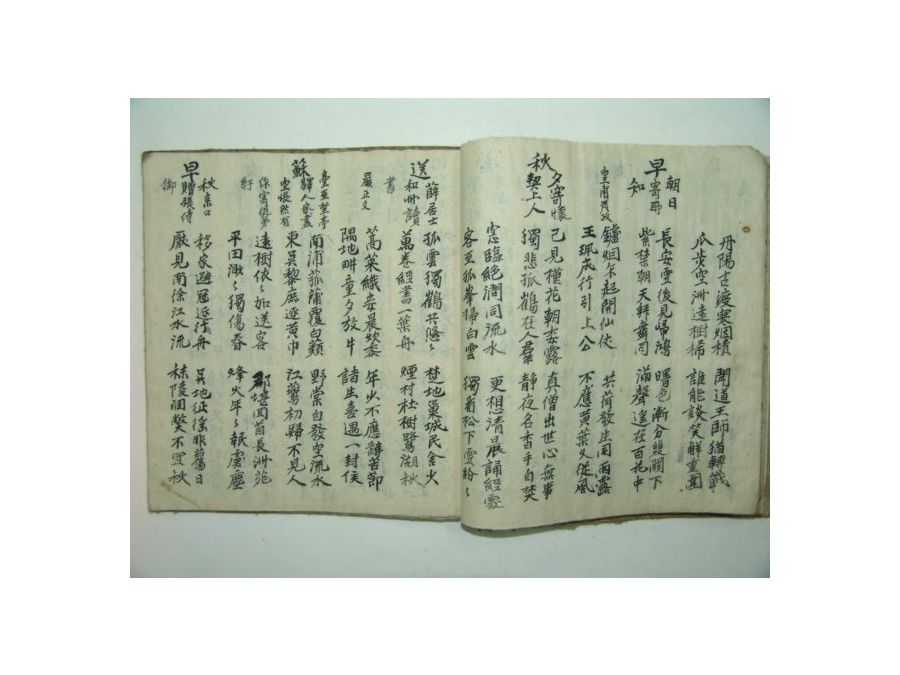 丹陽古渡寒烟積 聞道王師猶轉戰
瓜步空洲遠樹稀 誰能談笑解重圍
早朝日寄所知
長安雪後見歸鴻 曙色漸分雙闕下
紫禁朝天拜舞同 漏聲遙在百花中
皇甫茂政
鑪烟乍起開仙仗 共荷發生同雨露
玉珮成行引上公 不應黃葉久從風
秋夕寄懷契上人
已見槿花朝委露 真僧出世心無事
獨悲孤鶴在人羣 靜夜名香手自焚
窓臨絶澗同流水 更想清晨誦經處
客至孤峯掃白雲 獨看松下雪紛〻
送薛居士和州讀書
孤雲獨鶴共悠〻 楚地巢城民舍火
萬卷經書一葉舟 煙村社樹鷺湖秋
嚴正文
蒿萊織妾晨炊黍 年少不應辭苦節
隅地畊童夕放牛 諸生喜遇一封侯
蘇臺至望亭驛人家盡空悵然有作寄從弟紓
南浦菰蒲覆白蘋 野棠自發空流水
東吳黎庶逐黃巾 江鷰初歸不見人
遠樹依〻如送客 那堪回首長洲苑
平田渺〻獨傷春 烽火年〻報虜塵
早秋京口贈張侍御
移家避寇逐行舟 吳地征徭非舊日
厭見南徐江水流 秣陵凋弊不宜秋